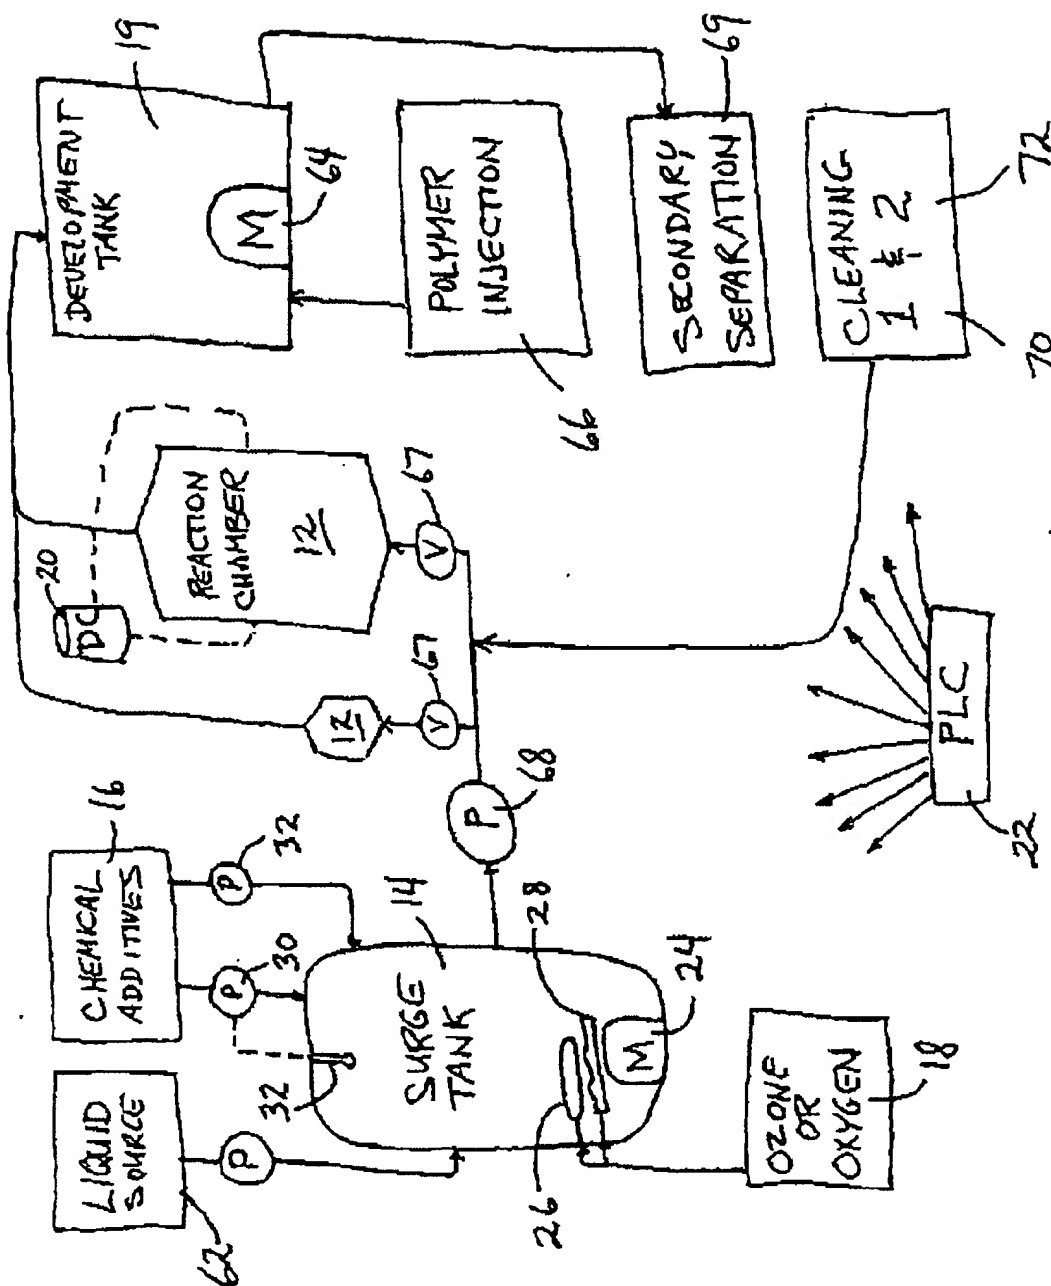 LIQUID
SOURCE
62
P
CHEMICAL
ADDITIVES
16
P
30
P
32
32
SURGE
TANK
14
26
28
M
24
OZONE
OR
OXYGEN
18
P
68
V
67
12
V
67
REACTION
CHAMBER
12
DC
20
DEVELOPMENT
TANK
19
M
64
POLYMER
INJECTION
66
SECONDARY
SEPARATION
69
CLEANING
1 & 2
70
72
PLC
22